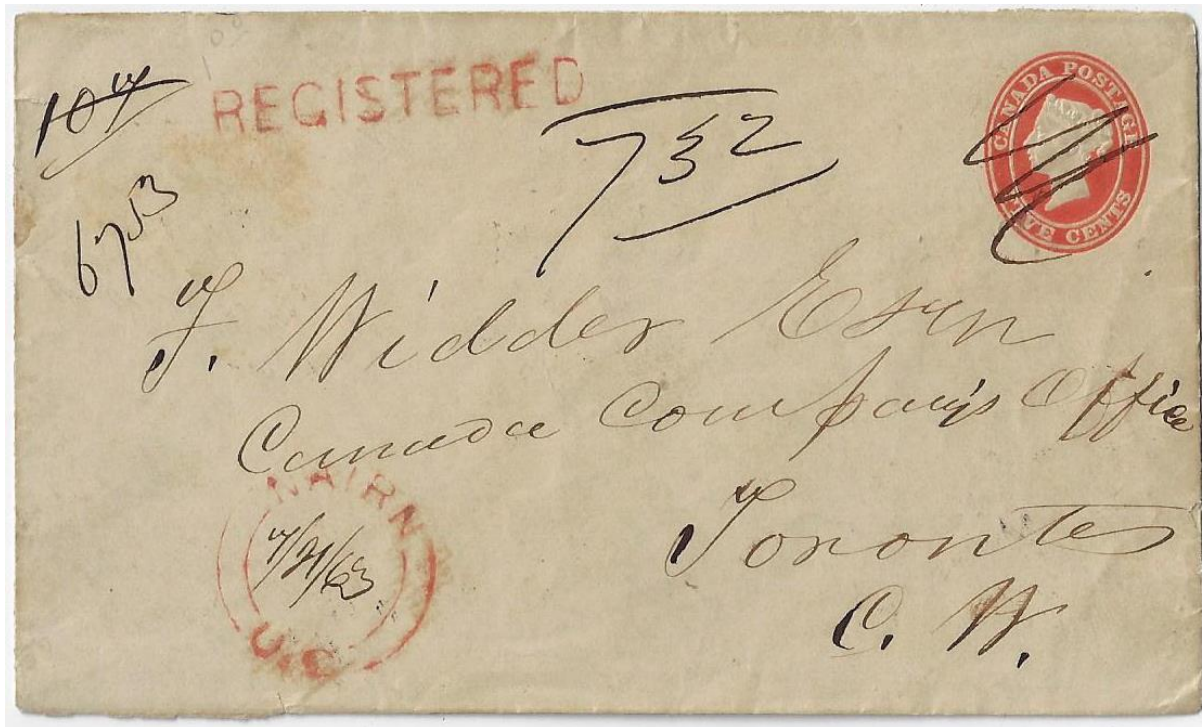 REGISTERED
732
6753
CANADA POSTAGE
FIVE CENTS
F. Widder Esqr
Canada Company's Office
Toronto
C. W.
NAIRN
U.C